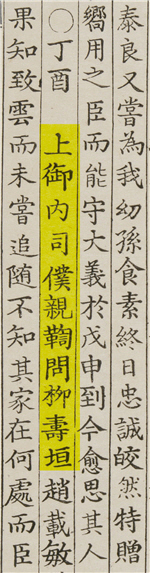 泰良又嘗為我幼孫食素終日忠誠皎然特贈
嚮用之臣而能守大義於戊申到今愈思其人
○丁酉上御內司僕親鞫問柳壽垣趙載敏
果知致雲而未嘗追随不知其家在何處而臣